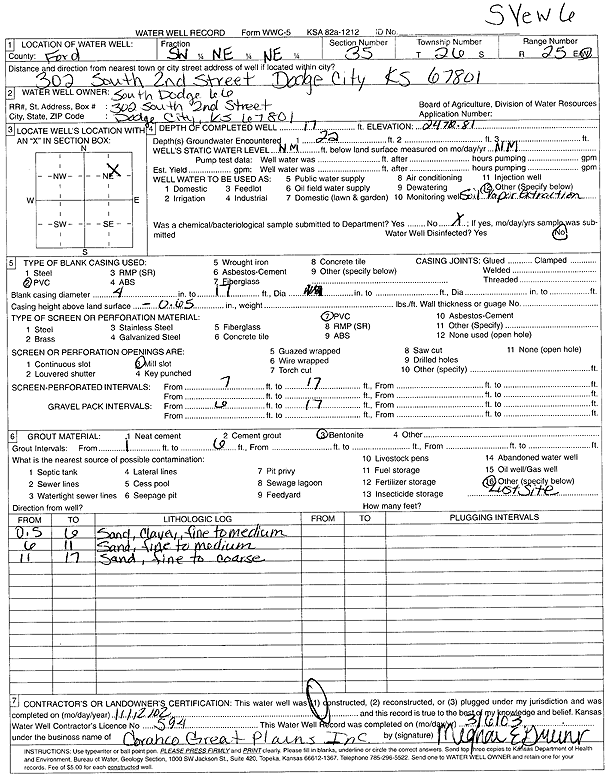 SVEW 6
WATER WELL RECORD Form WWC-5 KSA 82a-1212 ID No.
1 LOCATION OF WATER WELL: Fraction Section Number Township Number Range Number
County: Ford SW ¼ NE ¼ NE ¼ 35 T 26 S R 25 E W
Distance and direction from nearest town or city street address of well if located within city?
302 South 2nd Street Dodge City KS 67801
2 WATER WELL OWNER: South Dodge 66
RR#, St. Address, Box # : 302 South 2nd Street Board of Agriculture, Division of Water Resources
City, State, ZIP Code : Dodge City, KS 67801 Application Number:
3 LOCATE WELL'S LOCATION WITH AN "X" IN SECTION BOX:
N
NW NE X
W E
SW SE
S
4 DEPTH OF COMPLETED WELL 17 ft. ELEVATION: 2478.81
Depth(s) Groundwater Encountered 1 22 ft. 2 ft. 3 ft.
WELL'S STATIC WATER LEVEL NM ft. below land surface measured on mo/day/yr NM
Pump test data: Well water was ft. after hours pumping gpm
Est. Yield gpm: Well water was ft. after hours pumping gpm
WELL WATER TO BE USED AS: 5 Public water supply 8 Air conditioning 11 Injection well
1 Domestic 3 Feedlot 6 Oil field water supply 9 Dewatering 12 Other (Specify below)
2 Irrigation 4 Industrial 7 Domestic (lawn & garden) 10 Monitoring well Soil Vapor Extraction
Was a chemical/bacteriological sample submitted to Department? Yes No X ; If yes, mo/day/yrs sample was submitted
Water Well Disinfected? Yes No
5 TYPE OF BLANK CASING USED: 5 Wrought iron 8 Concrete tile CASING JOINTS: Glued Clamped
1 Steel 3 RMP (SR) 6 Asbestos-Cement 9 Other (specify below) Welded
2 PVC 4 ABS 7 Fiberglass Threaded
Blank casing diameter 4 in. to 17 ft., Dia in. to ft., Dia in. to ft.
Casing height above land surface - 0.65 in., weight lbs./ft. Wall thickness or guage No.
TYPE OF SCREEN OR PERFORATION MATERIAL: 7 PVC 10 Asbestos-Cement
1 Steel 3 Stainless Steel 5 Fiberglass 8 RMP (SR) 11 Other (Specify)
2 Brass 4 Galvanized Steel 6 Concrete tile 9 ABS 12 None used (open hole)
SCREEN OR PERFORATION OPENINGS ARE: 5 Guazed wrapped 8 Saw cut 11 None (open hole)
1 Continuous slot 3 Mill slot 6 Wire wrapped 9 Drilled holes
2 Louvered shutter 4 Key punched 7 Torch cut 10 Other (specify) ft.
SCREEN-PERFORATED INTERVALS: From 7 ft. to 17 ft., From ft. to ft.
From ft. to ft., From ft. to ft.
GRAVEL PACK INTERVALS: From 6 ft. to 17 ft., From ft. to ft.
From ft. to ft., From ft. to ft.
6 GROUT MATERIAL: 1 Neat cement 2 Cement grout 3 Bentonite 4 Other
Grout Intervals: From 1 ft. to 6 ft., From ft. to ft., From ft. to ft.
What is the nearest source of possible contamination: 10 Livestock pens 14 Abandoned water well
1 Septic tank 4 Lateral lines 7 Pit privy 11 Fuel storage 15 Oil well/Gas well
2 Sewer lines 5 Cess pool 8 Sewage lagoon 12 Fertilizer storage 16 Other (specify below)
3 Watertight sewer lines 6 Seepage pit 9 Feedyard 13 Insecticide storage Lust Site
Direction from well? How many feet?
FROM TO LITHOLOGIC LOG FROM TO PLUGGING INTERVALS
0.5 6 Sand, clayey, fine to medium
6 11 Sand, fine to medium
11 17 Sand, fine to coarse
7 CONTRACTOR'S OR LANDOWNER'S CERTIFICATION: This water well was (1) constructed, (2) reconstructed, or (3) plugged under my jurisdiction and was
completed on (mo/day/year) 11/12/02 and this record is true to the best of my knowledge and belief. Kansas
Water Well Contractor's Licence No 594 This Water Well Record was completed on (mo/day/yr) 3/6/03
under the business name of Coranco Great Plains Inc by (signature)
INSTRUCTIONS: Use typewriter or ball point pen. PLEASE PRESS FIRMLY and PRINT clearly. Please fill in blanks, underline or circle the correct answers. Send top three copies to Kansas Department of Health
and Environment, Bureau of Water, Geology Section, 1000 SW Jackson St., Suite 420, Topeka, Kansas 66612-1367. Telephone 785-296-5522. Send one to WATER WELL OWNER and retain one for your
records. Fee of $5.00 for each constructed well.